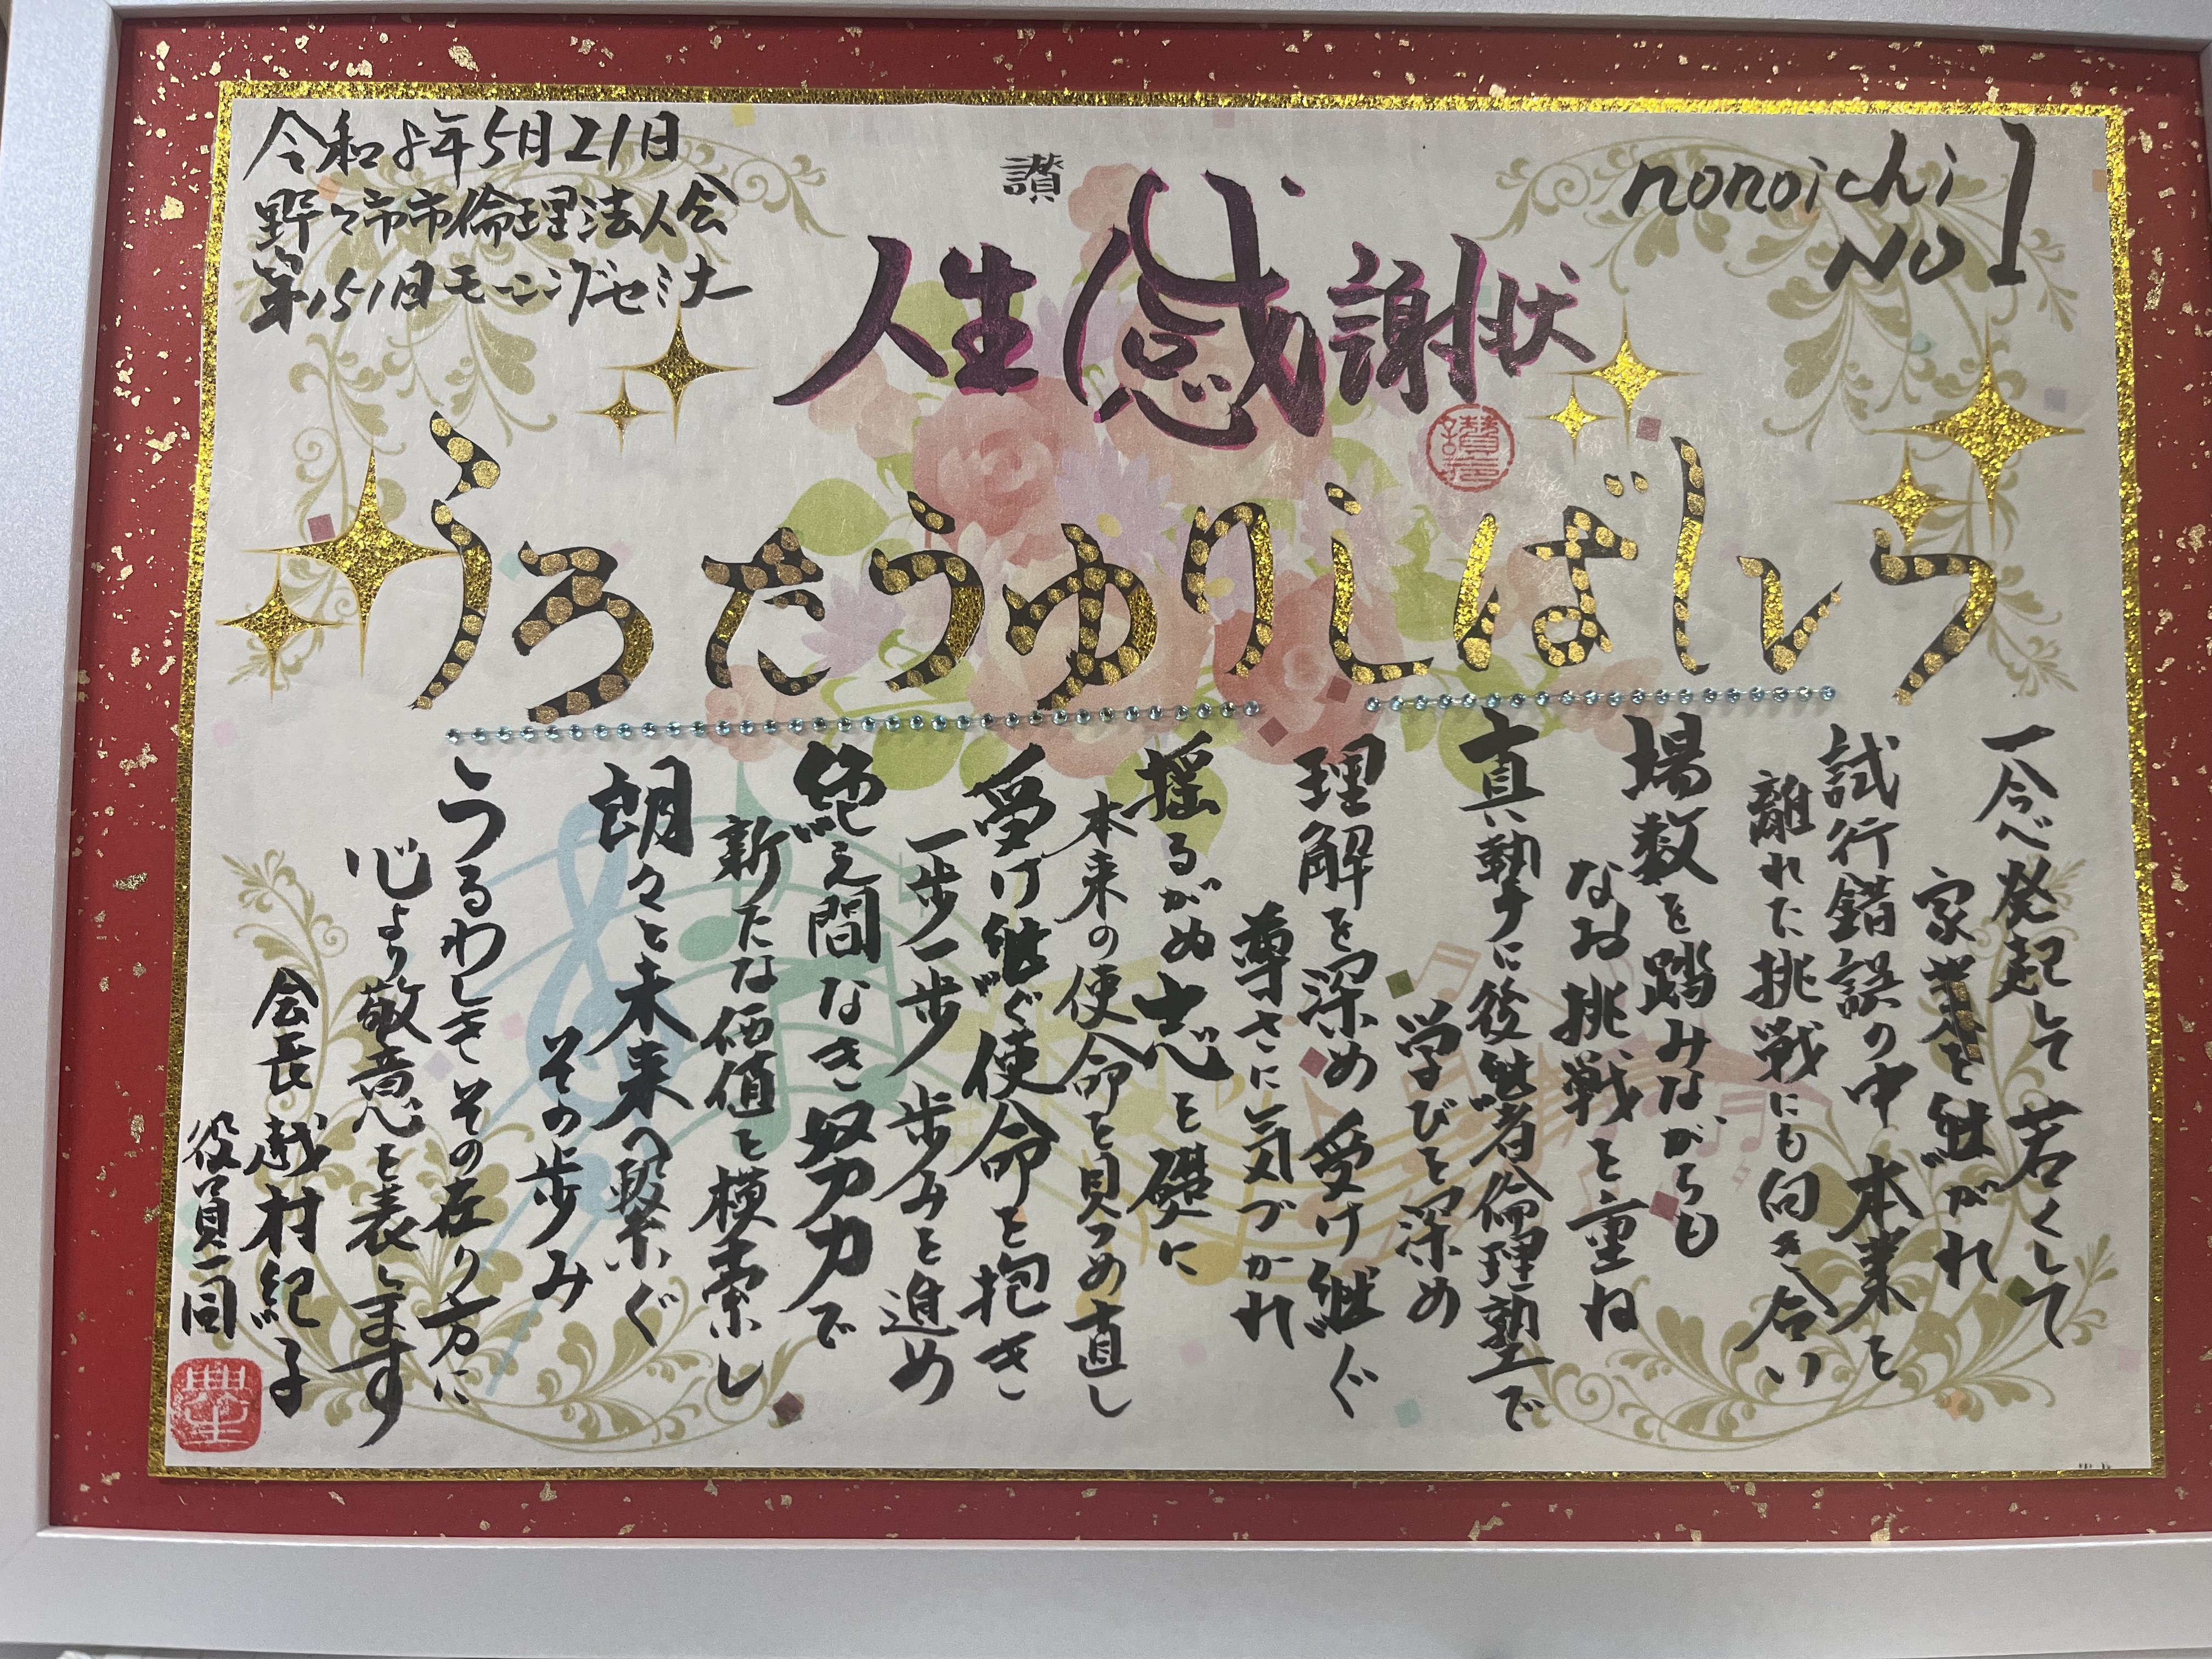 令和8年5月21日
野々市市倫理法人会
第151回モーニングセミナー
讃
nonoichi
No1
人生感謝状
いしばしりゆうたろう
一念発起して若くして
家業を継がれ
試行錯誤の中本業を
離れた挑戦にも向き合い
場数を踏みながらも
なお挑戦を重ね
真摯に後継者倫理塾で
学びを深め
理解を深め受け継ぐ
尊さに気づかれ
揺るがぬ志を礎に
本来の使命を見つめ直し
受け継ぐ使命を抱き
一歩一歩歩みを進め
絶え間なき努力で
新たな価値を模索し
朗々と未来へ繋ぐ
その歩み
うるわしきその在り方に
心より敬意を表します
会長越村紀子
役員一同